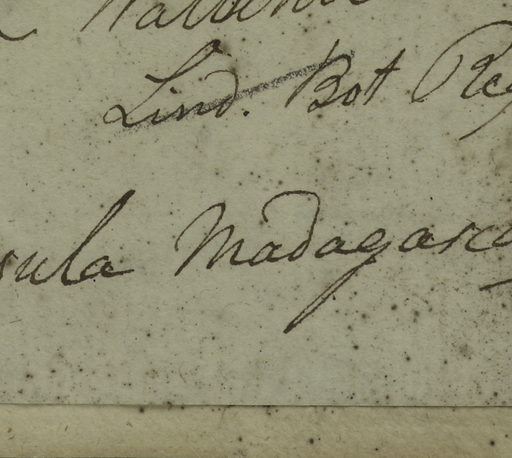 Lind. Bot Reg
sula Madagasca